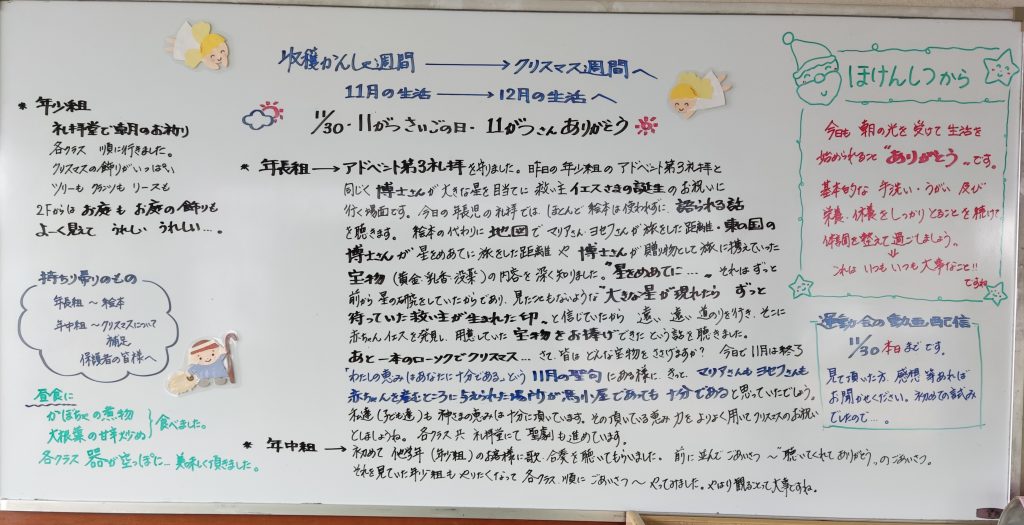 収穫かんしゃ週間 → クリスマス週間へ
11月の生活 → 12月の生活へ
11/30・11がつさいごの日・11がつさんありがとう
* 年少組
礼拝堂で朝のお祈り
各クラス 順に行きました。
クリスマスの飾りがいっぱい
ツリーも クランツも リースも
2Fからは お庭も お庭の飾りも
よーく見えて うれしい うれしい…。
持ち帰りのもの
年長組 ～ 絵本
年中組 ～ クリスマスについて
補足
保護者の皆様へ
昼食に
かぼちゃの煮物
大根葉の甘辛炒め
食べました。
各クラス 器が空っぽに…美味しく頂きました。
* 年長組 → アドベント第3礼拝を守りました。昨日の年少組のアドベント第3礼拝と
同じく 博士さんが大きな星を目当てに 救い主 イエスさまの誕生のお祝いに
行く場面です。今日の年長児の礼拝では ほとんど絵本は使われずに、語られる話
を聴きます。 絵本の代わりに 地図で マリアさん・ヨセフさんが旅をした距離・東の国の
博士さんが 星をめあてに旅をした距離 や 博士さんが贈り物として旅に携えていった
宝物（黄金・乳香・没薬）の内容を深く知りました。"星をめあてに…" それはずっと
前から 星の研究をしていたからであり、見たこともないような "大きな星が現れたら ずっと
待っていた救い主が生まれた印" と信じていたから 遠い 遠い 道のりを行き、そこに
赤ちゃんイエスを発見し、用意していた 宝物をお捧げできた という話を聴きました。
あと一本のローソクでクリスマス… さて、皆は どんな宝物をささげますか? 今日で11月は終了
「わたしの恵みはあなたに十分である」という 11月の聖句にある様に、きっと、マリアさんもヨセフさんも
赤ちゃんを産むところに与えられた場所が馬小屋であっても 十分であると思っていたでしょう。
私達（子ども達）も 神さまの恵みは十分に頂いています。その頂いている恵み 力を よりよく用いてクリスマスのお祝い
としましょうね。 各クラス共 礼拝堂にて 聖劇も進めています。
* 年中組 → 初めて 他学年（年少組）のお客様に歌、合奏を聴いてもらいました。 前に並んで ごあいさつ ～ "聴いてくれてありがとう" のごあいさつ。
それを見ていた年少組も やりたくなって 各クラス 順に ごあいさつ～ やってみました。やはり観るって大事ですね。
ほけんしつから
今日も 朝の光を受けて 生活を
始められること "ありがとう" です。
基本的な 手洗い・うがい 及び
栄養・休養をしっかりとることを続けて
体調を整えて過ごしましょう。
これは いつも いつも 大事なこと!!
ですね
運動会の動画配信
11/30 本日までです。
見て頂いた方、感想等あれば
お聞かせください。初めての試み
でしたので…。